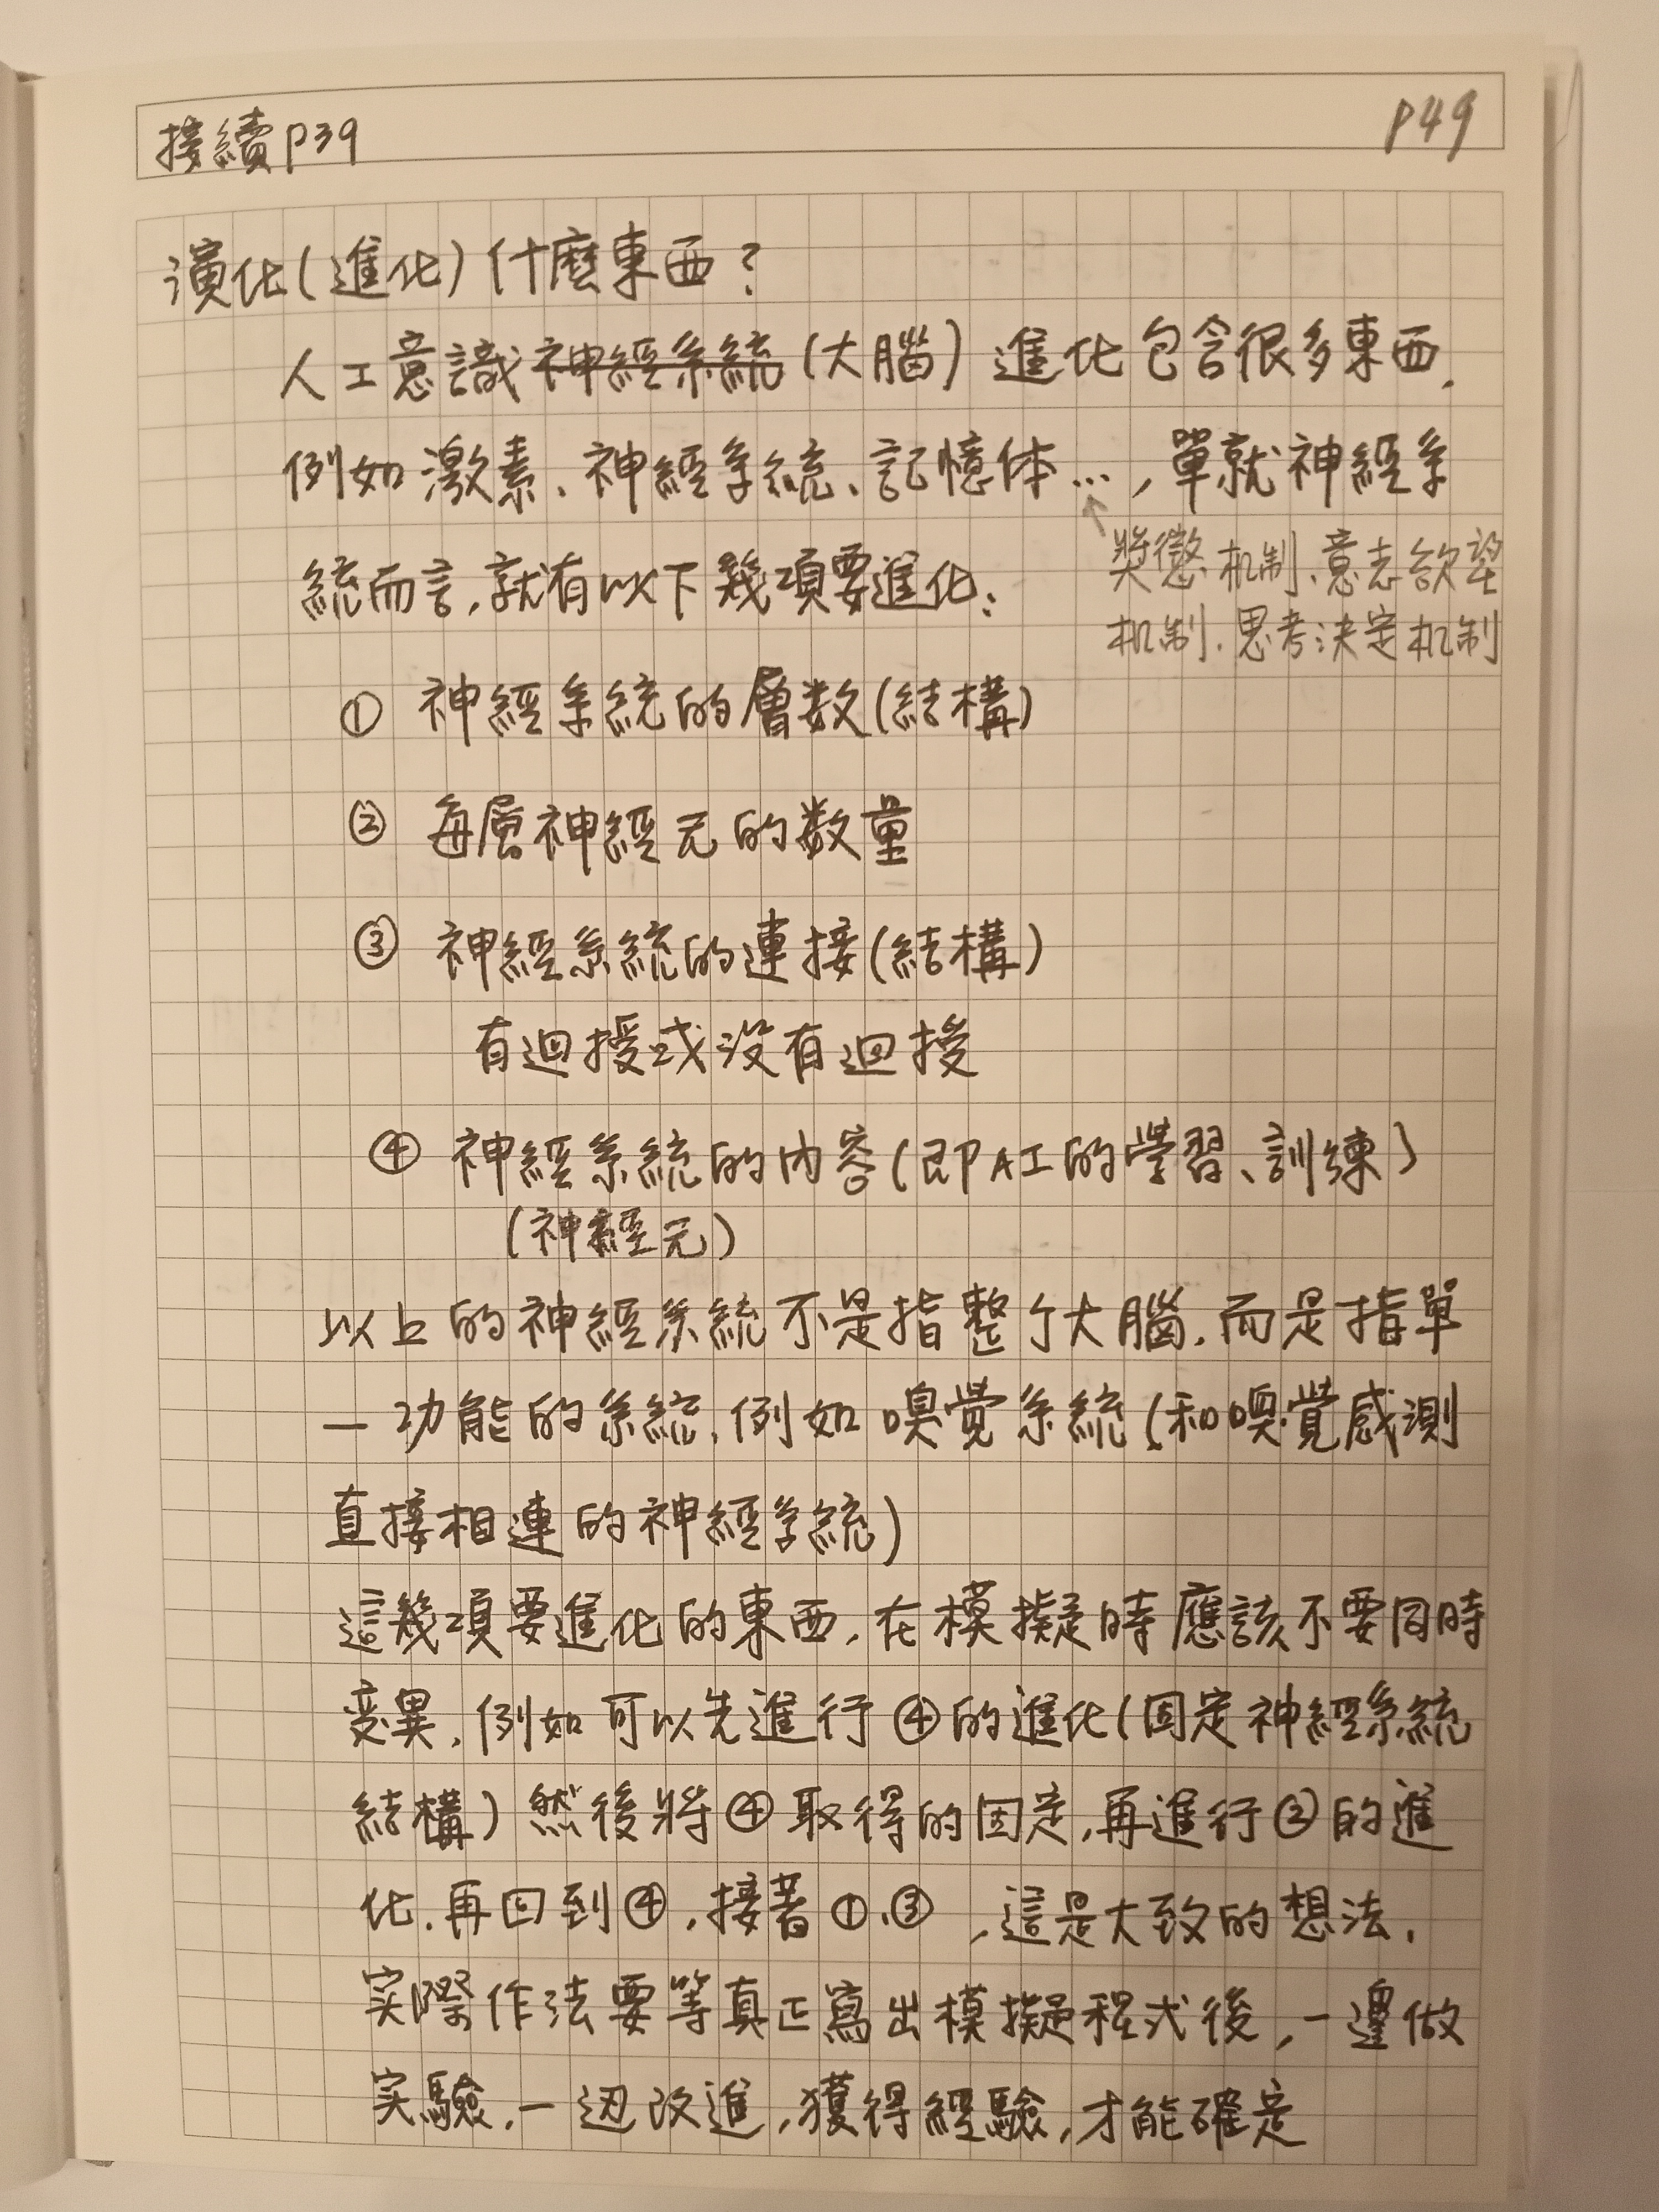 接續P39
P49
演化(進化)什麼東西?
人工意識神經系統(大腦)進化包含很多東西,
例如激素、神經系統、記憶体…,單就神經系
獎懲机制、意志欲望
統而言,就有以下幾項要進化:
机制、思考決定机制
① 神經系統的層数(結構)
② 每層神經元的数量
③ 神經系統的連接(結構)
有迴授或沒有迴授
④ 神經系統的內容(即AI的學習、訓練)
(神經元)
以上的神經系統不是指整个大腦,而是指單
一功能的系統,例如嗅覺系統(和嗅覺感測
直接相連的神經系統)
這幾項要進化的東西,在模擬時應該不要同時
變異,例如可以先進行④的進化(固定神經系統
結構)然後將④取得的固定,再進行②的進
化.再回到④,接著①、③,這是大致的想法,
实際作法要等真正寫出模擬程式後,一邊做
实驗,一边改進,獲得經驗,才能確定